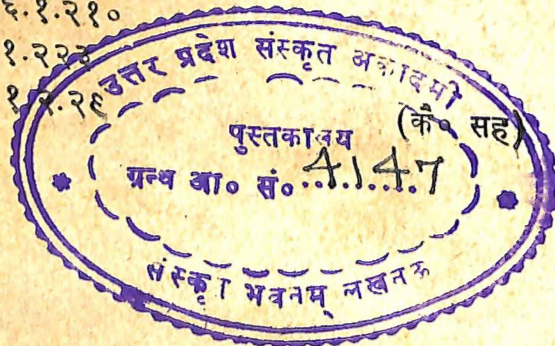 ६.१.२१०
१.२२३
उत्तर प्रदेश संस्कृत अकादमी
१.२.२६
(कै० सह)
पुस्तकालय
ग्रन्थ आ० सं० 4147
संस्कृत भवनम् लखनऊ